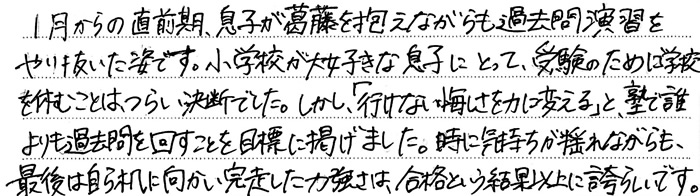 1月からの直前期、息子が葛藤を抱えながらも過去問演習を
やり抜いた姿です。小学校が大好きな息子にとって、受験のために学校
を休むことはつらい決断でした。しかし、「行けない悔しさを力に変える」と、塾で誰
よりも過去問を回すことを目標に掲げました。時に気持ちが揺れながらも、
最後は自ら机に向かい完走した力強さは、合格という結果以上に誇らしいです